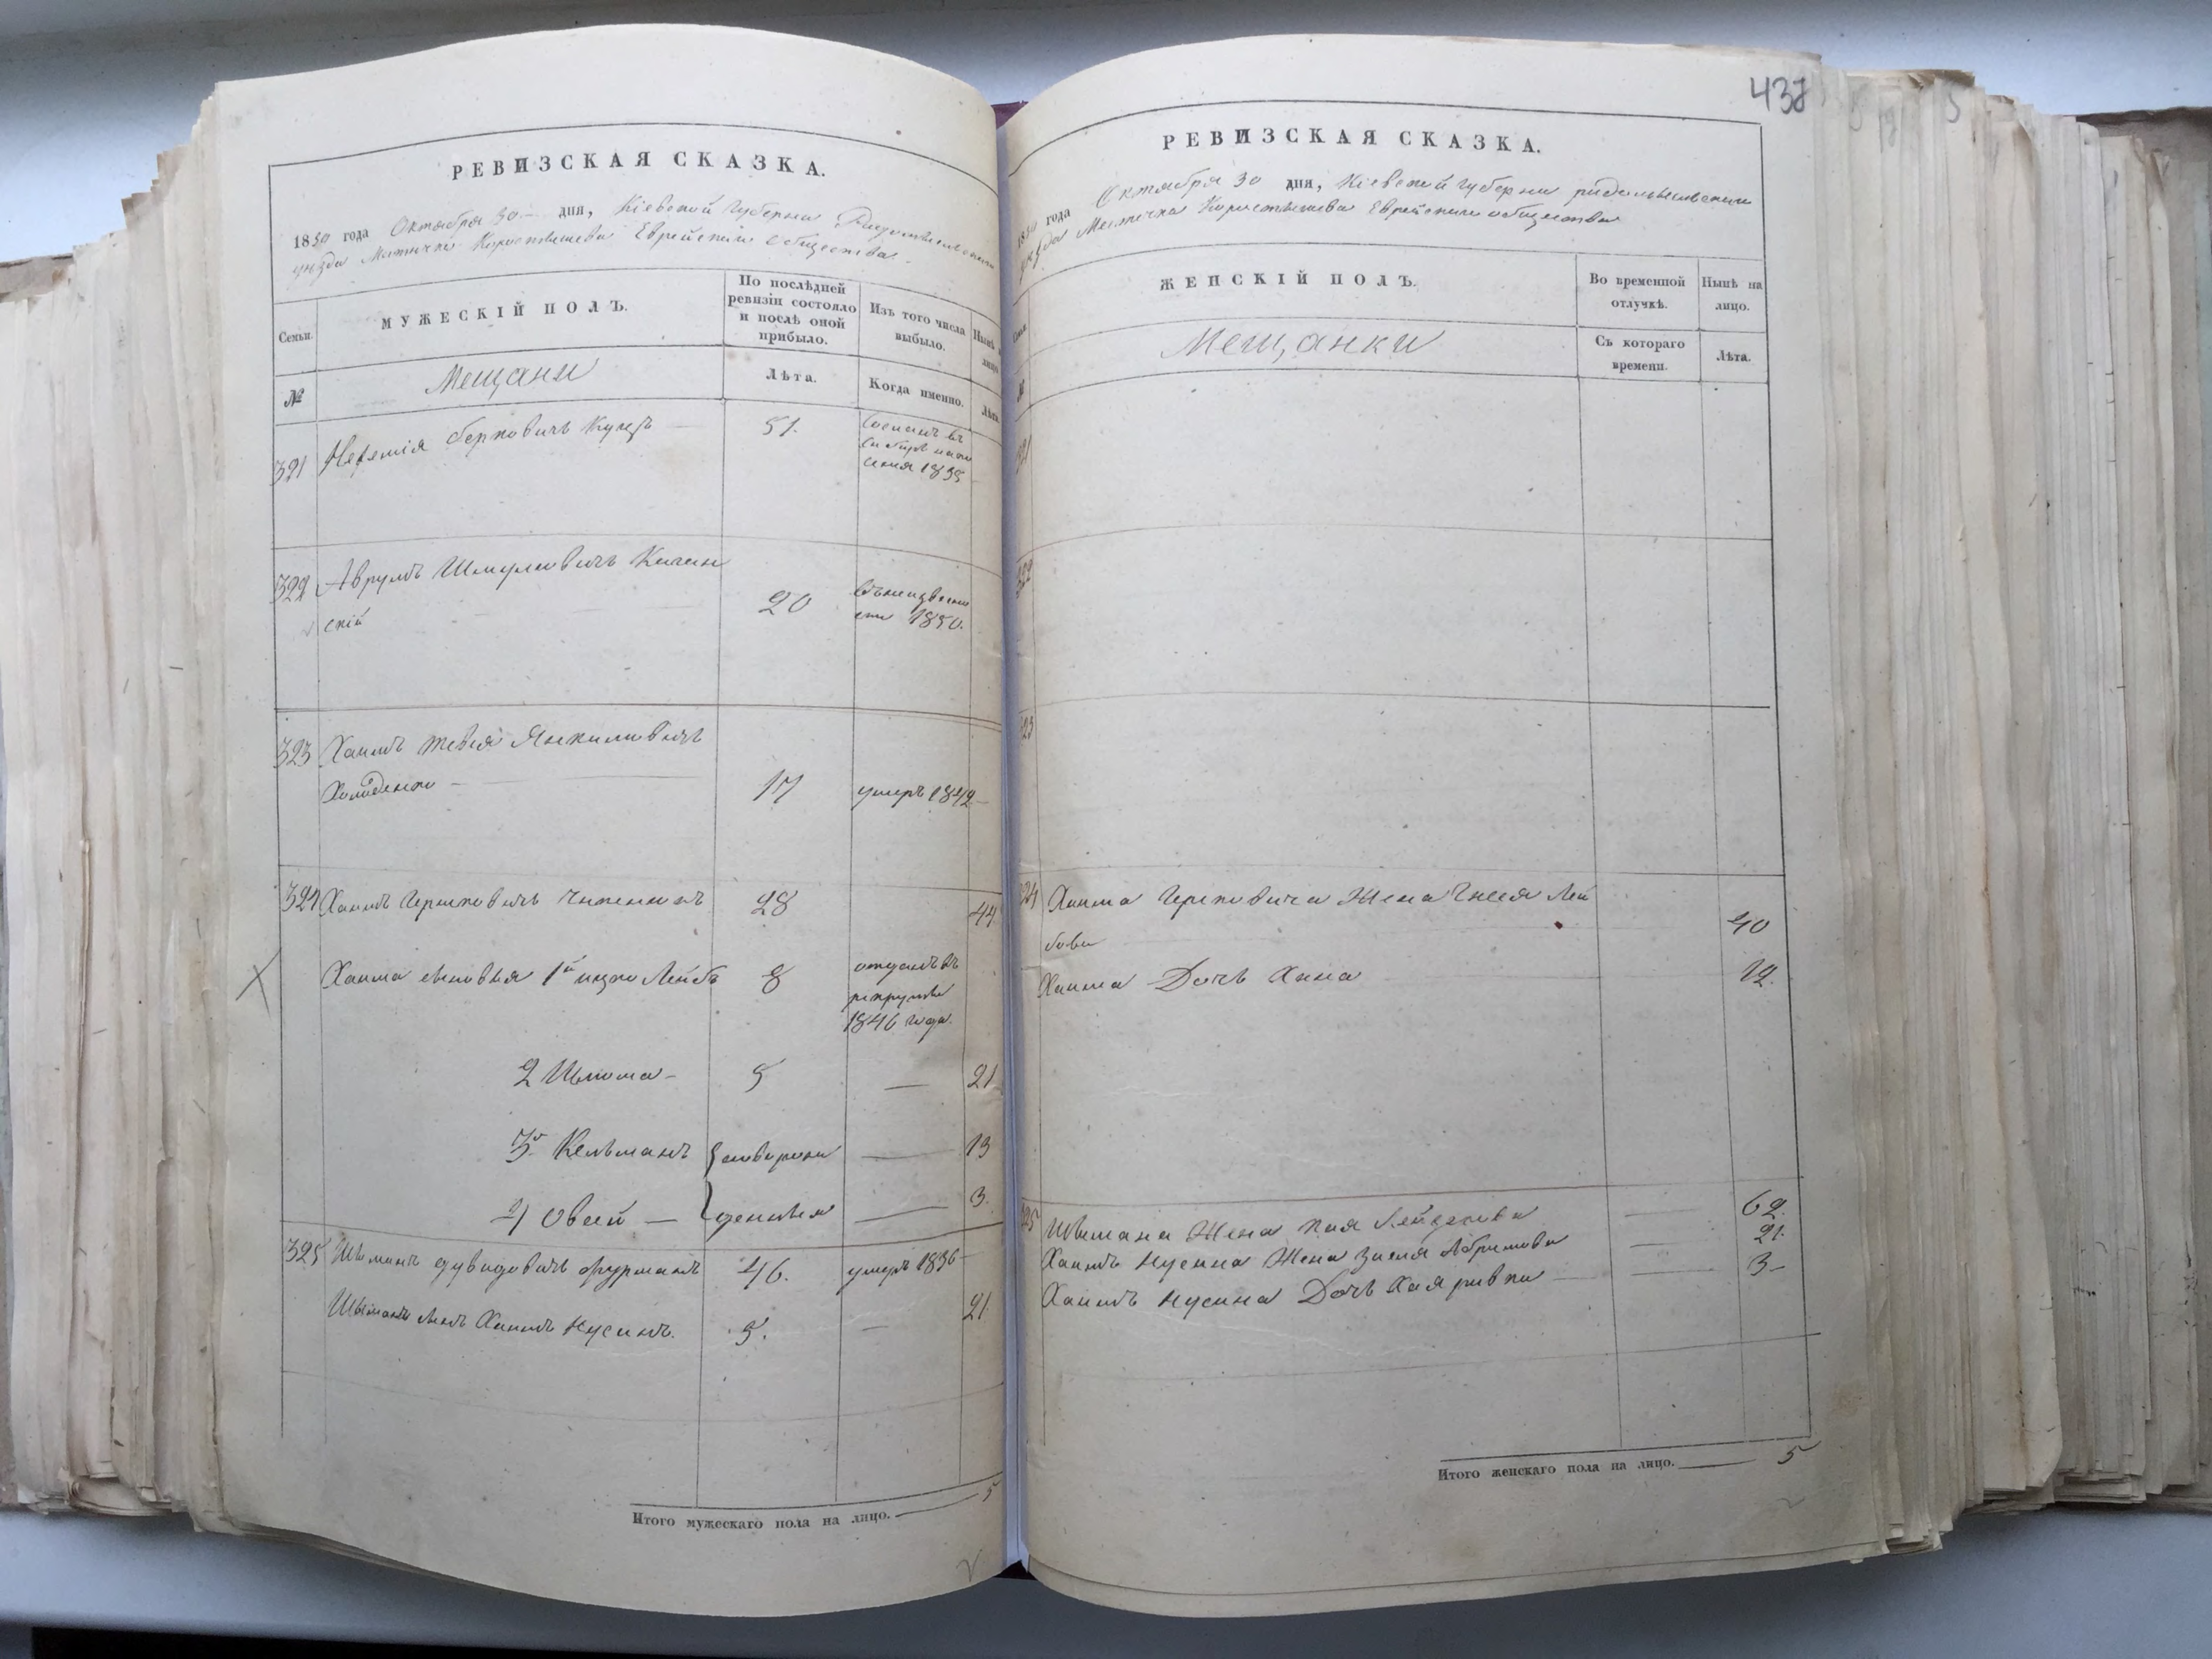 437
РЕВИЗСКАЯ СКАЗКА.
1850 года Октября 30 дня, Кіевской Губерніи Радомысльскаго
уѣзда Мѣстечка Коростышева Еврейскаго общества.
Семьи. МУЖЕСКІЙ ПОЛЪ. По послѣдней ревизіи состояло и послѣ оной прибыло. Изъ того числа выбыло. Нынѣ на лицо
№ Мещани Лѣта. Когда именно. Лѣта.
321 Нехемія Берковичъ 51. Сосланъ въ
Сибирь на
1835
322 Аврумъ Шмулевичъ
скій 20 1850.
323 Хаимъ Тевія Янкилевичъ
Холоденко 17 умеръ 1842
324 Хаимъ Гершковичъ 28 44
Хаима сыновья 1й ицко Лейбъ 8 отданъ въ
рекруты
1846 года.
2 Шлиома 5 21
3й Кельманъ 13
4 Овсей 3.
325 Шлиманъ дувидовичъ фурманъ 46. умеръ 1836
Шлимана сынъ Хаимъ Нусинъ. 5. 21
Итого мужескаго пола на лицо. 5
РЕВИЗСКАЯ СКАЗКА.
1850 года Октября 30 дня, Кіевской Губерніи радомысльскаго
уѣзда Мѣстечка Коростышева Еврейскаго общества
Семьи. ЖЕНСКІЙ ПОЛЪ. Во временной отлучкѣ. Нынѣ на лицо.
№ Мещанки Съ котораго времени. Лѣта.
321
322
323
324 Хаима Герсковича Жена Гнеся Лей
бова 40
Хаима Дочь Хана 12.
325 Шлимана Жена Лейзерова 62.
Хаимъ Нусина Жена Абрамова 21.
Хаимъ Нусина Дочь Хая ривка 3
Итого женскаго пола на лицо. 5